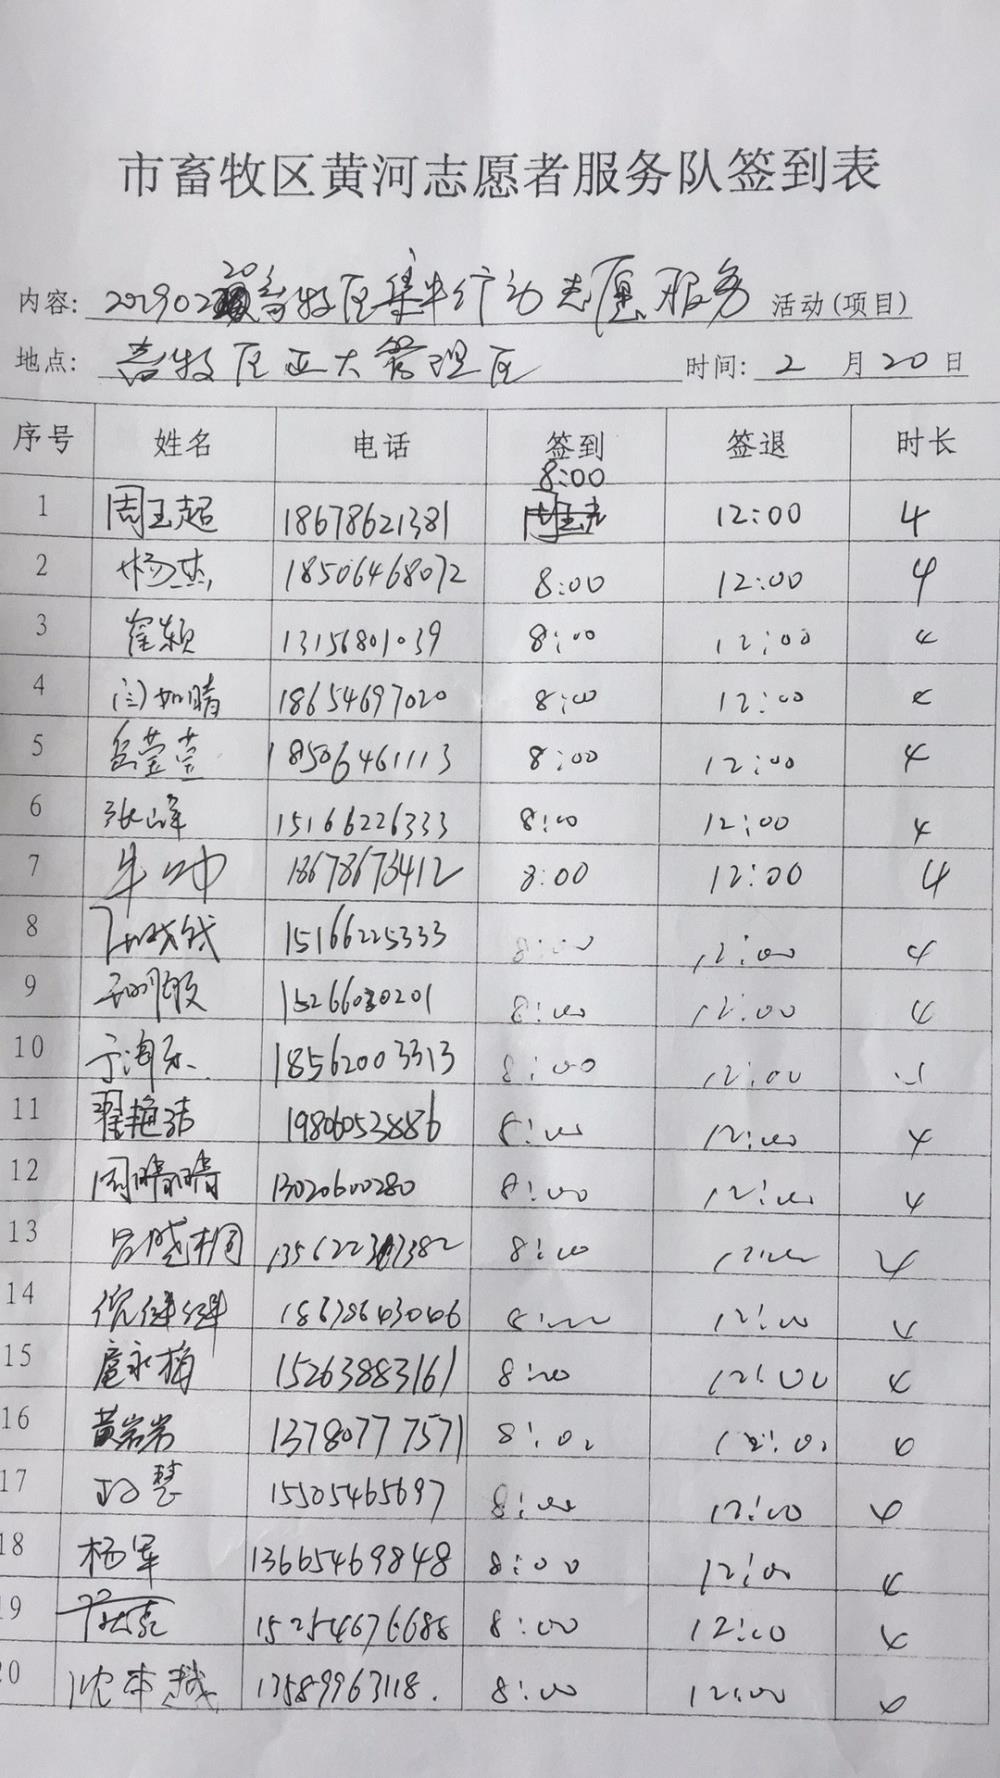 市畜牧区黄河志愿者服务队签到表
内容: 20190220畜牧区集中行动志愿服务 活动(项目)
地点: 畜牧区亚大管理区 时间: 2 月 20 日
序号 姓名 电话 签到 签退 时长
1 周玉超 18678621381 8:00 12:00 4
2 杨杰 18506468072 8:00 12:00 4
3 崔颖 13156801039 8:00 12:00 4
4 闫如晴 18654697020 8:00 12:00 4
5 岳莹莹 18506461113 8:00 12:00 4
6 张峰 15166226333 8:00 12:00 4
7 牛帅 18678673412 8:00 12:00 4
8 15166225333 8:00 12:00 4
9 15266030201 8:00 12:00 4
10 于海东 18562003313 8:00 12:00
11 翟艳洁 19806053886 8:00 12:00 4
12 周晴晴 13020600280 8:00 12:00 4
13 吕晓桐 8:00 12:00 4
14 倪继继 18678643046 8:00 12:00 4
15 扈永梅 15263883161 8:00 12:00 4
16 黄岩岩 13780777571 8:00 12:00 4
17 慧 15505465697 8:00 12:00 4
18 杨军 13665469848 8:00 12:00 4
19 15254676688 8:00 12:00 4
20 沈本越 13589963118. 8:00 12:00 4